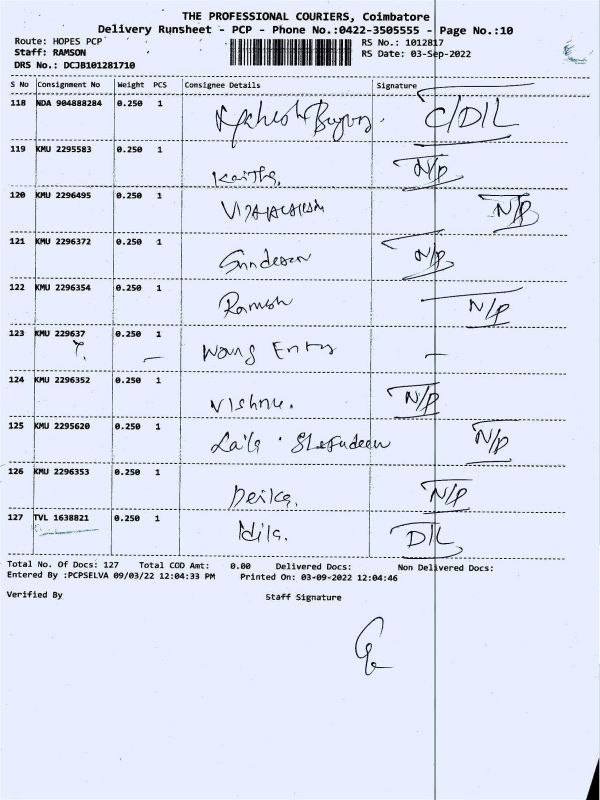 THE PROFESSIONAL COURIERS, Coimbatore
Delivery Runsheet - PCP - Phone No.:0422-3505555 - Page No.:10
Route: HOPES PCP
RS No.: 1012817
Staff: RAMSON
RS Date: 03-Sep-2022
DRS No.: DCJB101281710
S No Consignment No Weight PCS Consignee Details Signature
118 NDA 904888284 0.250 1 C/D/L
119 KMU 2295583 0.250 1 N/P
120 KMU 2296495 0.250 1 N/P
121 KMU 2296372 0.250 1 Sundesan N/P
122 KMU 2296354 0.250 1 Ramesh N/P
123 KMU 229637 0.250 1 Wong Entry —
124 KMU 2296352 0.250 1 Vishnu. N/P
125 KMU 2295620 0.250 1 N/P
126 KMU 2296353 0.250 1 N/P
127 TVL 1638821 0.250 1 D/L
Total No. Of Docs: 127 Total COD Amt: 0.00 Delivered Docs: Non Delivered Docs:
Entered By :PCPSELVA 09/03/22 12:04:33 PM Printed On: 03-09-2022 12:04:46
Verified By Staff Signature